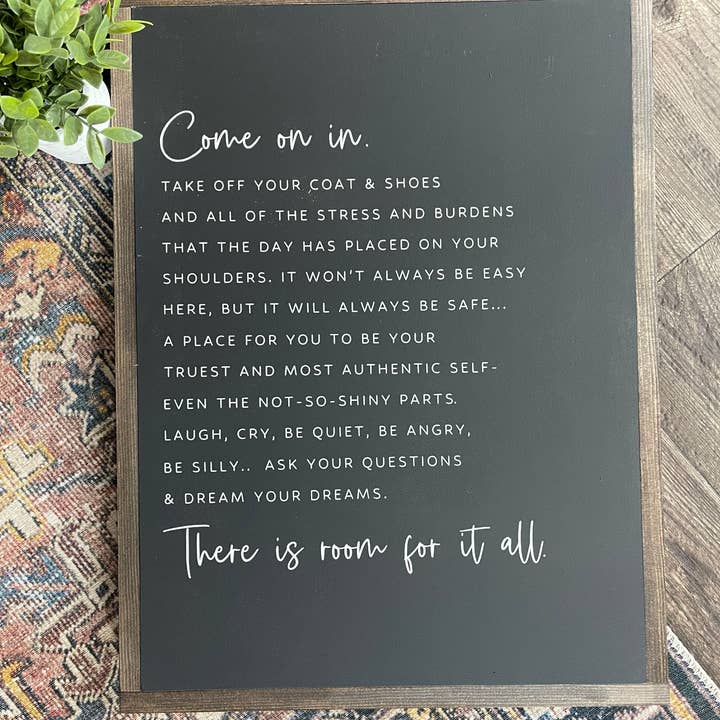 Come on in.
TAKE OFF YOUR COAT & SHOES
AND ALL OF THE STRESS AND BURDENS
THAT THE DAY HAS PLACED ON YOUR
SHOULDERS. IT WON'T ALWAYS BE EASY
HERE, BUT IT WILL ALWAYS BE SAFE...
A PLACE FOR YOU TO BE YOUR
TRUEST AND MOST AUTHENTIC SELF-
EVEN THE NOT-SO-SHINY PARTS.
LAUGH, CRY, BE QUIET, BE ANGRY,
BE SILLY.. ASK YOUR QUESTIONS
& DREAM YOUR DREAMS.
There is room for it all.